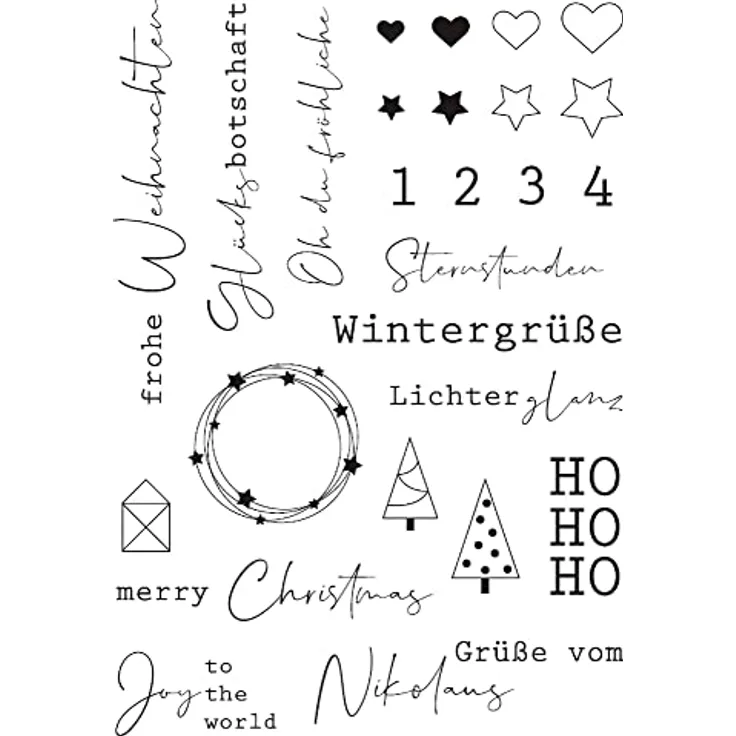 frohe Weihnachten
Glücksbotschaft
Oh du fröhliche
1 2 3 4
Sternstunden
Wintergrüße
Lichterglanz
HO
HO
HO
merry Christmas
Joy to
the
world
Grüße vom
Nikolaus